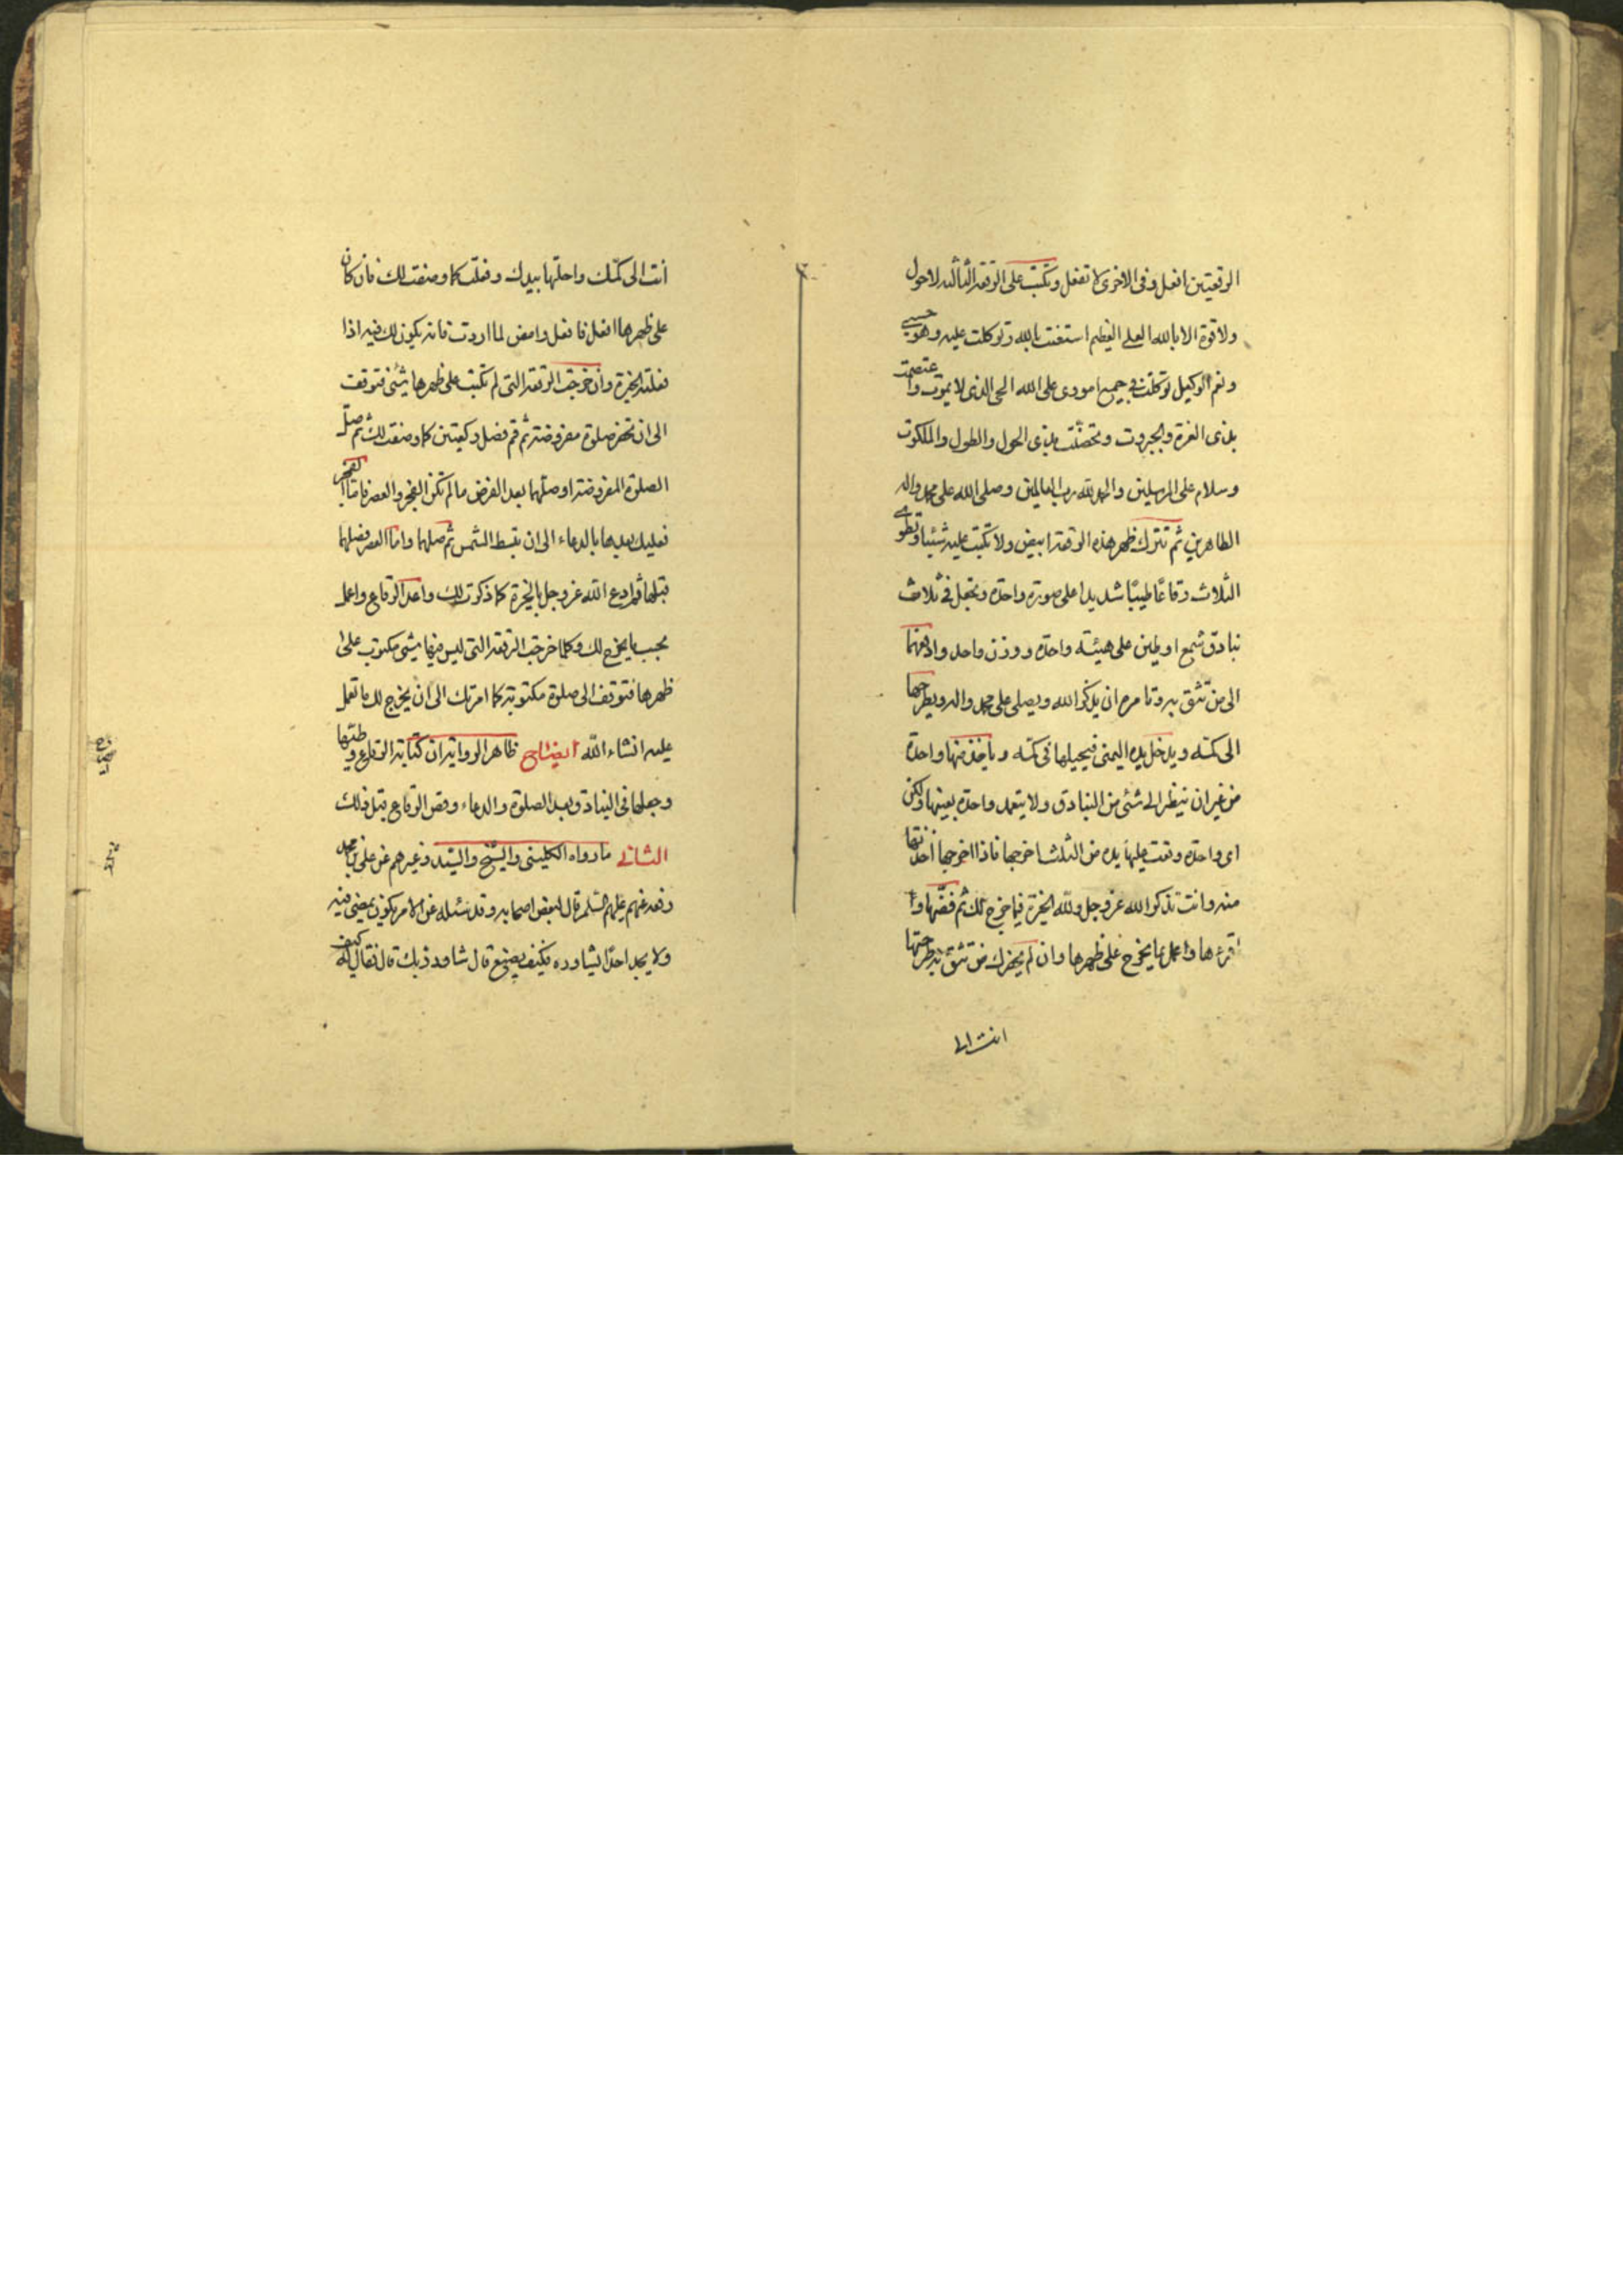 الرقعتين افعل وفى الاخرى لا تفعل وتكتب على الرقعة الثالثة لا حول
ولا قوة الا بالله العلى العظيم استعنت بالله وتوكلت عليه وهو حسبى
ونعم الوكيل توكلت فى جميع امورى على الله الحى الذى لا يموت واعتصمت
بذى العزة والجبروت وتحصنت بذى الحول والطول والملكوت
وسلام على المرسلين والحمد لله رب العالمين وصلى الله على محمد واله
الطاهرين ثم تترك ظهر هذه الرقعة ابيض ولا تكتب عليه شيئا وتطوى
الثلاث رقاعا طيبا شديدا على صورة واحدة وتجعل فى ثلاث
بنادق شمع او طين على هيئة واحدة ووزن واحد وادفعها
الى من تثق به وتامره ان يذكر الله ويصلى على محمد واله ويطرحها
الى كمه ويدخل يده اليمنى فيجيلها فى كمه وياخذ منها واحدة
من غير ان ينظر الى شئ من البنادق ولا يتعمد واحدة بعينها ولكن
اى واحدة وقعت عليها يده من الثلث اخرجها فاذا اخرجها اخذتها
منه وانت تذكر الله عز وجل ولله الخيرة فيما خرج لك ثم فضها وا
قرءها واعمل بما يخرج على ظهرها وان لم يحضرك من تثق به طرحتها
انت الى
انت الى كمك واجلتها بيدك وفعلت كما وصفت لك فان كان
على ظهرها افعل فافعل وامض لما اردت فانه يكون لك فيه اذا
فعلته الخيرة وان خرجت الرقعة التى لم تكتب على ظهرها شئ فتوقف
الى ان تحضر صلوة مفروضة ثم قم فصل ركعتين كما وصفت لك ثم صل
الصلوة المفروضة او صلهما بعد الفرض ما لم تكن الفجر والعصر فاما الفجر
فعليك بعدها بالدعاء الى ان تبسط الشمس ثم صلها واما العصر فصلها
قبلها ثم ادع الله عز وجل بالخيرة كما ذكرت لك واعد الرقاع واعمل
بحسب ما يخرج لك وكلما خرجت الرقعة التى ليس فيها شئ مكتوب على
ظهرها فتوقف الى صلوة مكتوبة كما امرتك الى ان يخرج لك ما تعمل
عليه انشاء الله ايضاح ظاهر الرواية ان كتابة الرقاع وطيها
وجعلها فى البنادق وبعد الصلوة والدعاء وفض الرقاع قبل ذلك
الثانى ما رواه الكلينى والشيخ والسيد وغيرهم عن على بن محمد
رفعه عنهم عليهم السلم قال لبعض اصحابه وقد سئله عن الامر يكون يمضى فيه
ولا يجد احدا يشاوره فكيف يصنع قال شاور ربك قال فقال له كيف